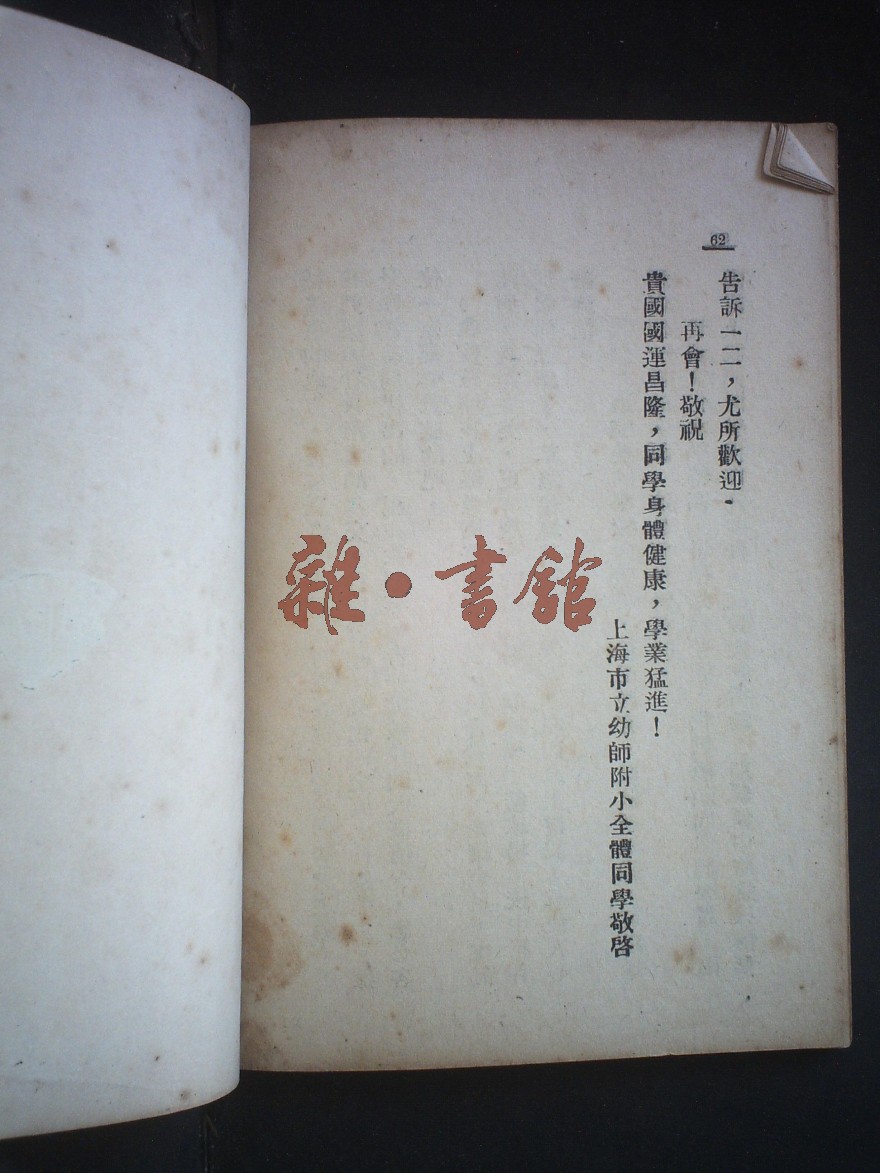 62
告訴一二，尤所歡迎．
再會！敬祝
貴國國運昌隆，同學身體健康，學業猛進！
上海市立幼師附小全體同學敬啓
雜・書館